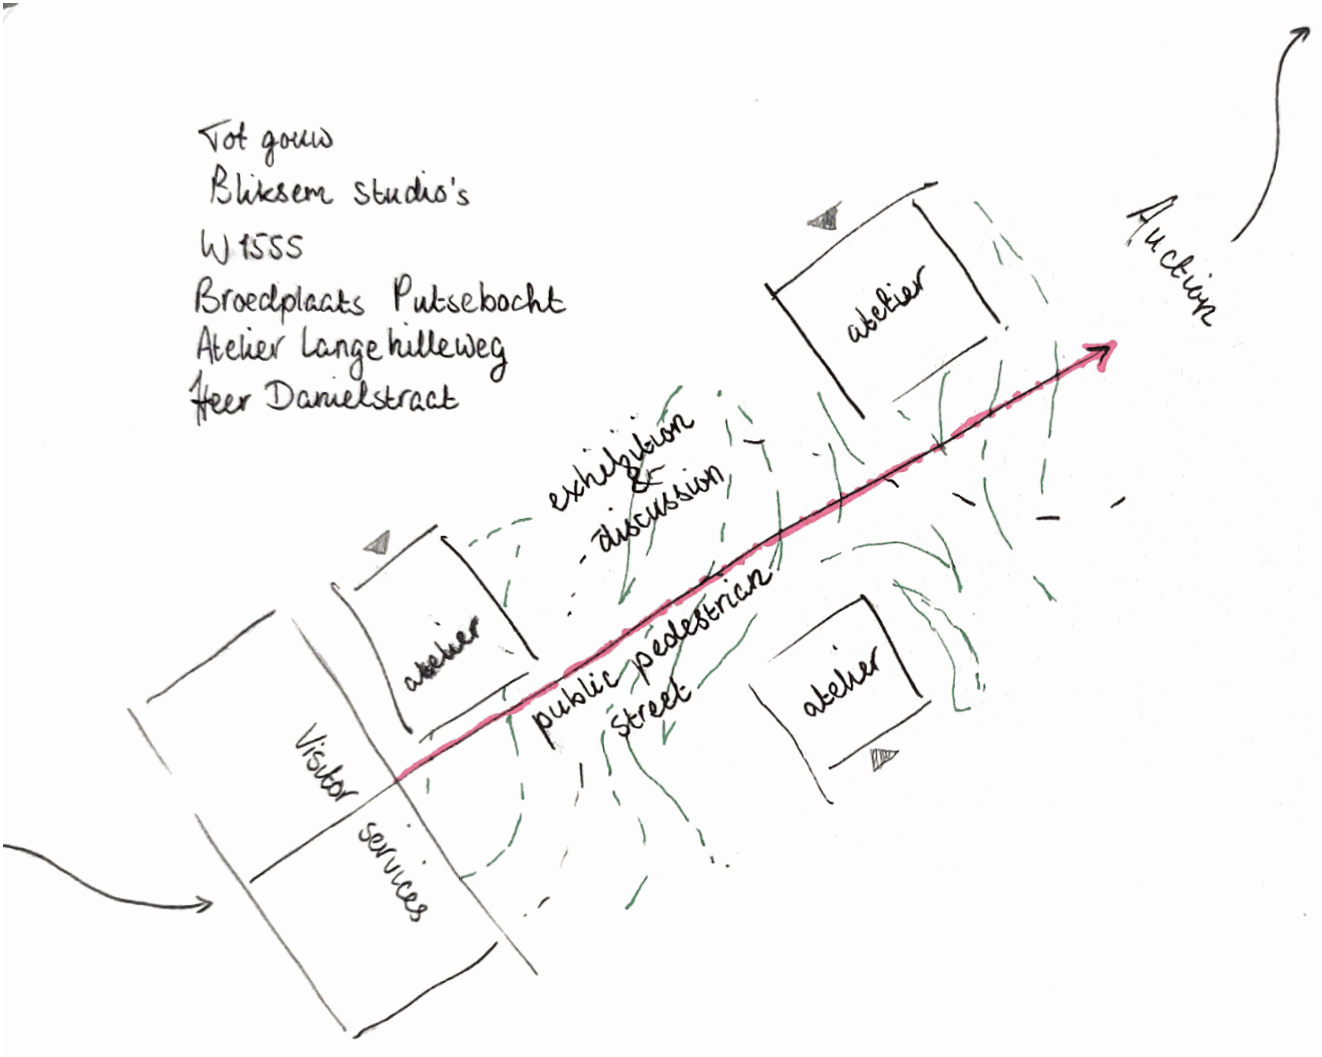 Tot gouw
Bliksem studio's
W1555
Broedplaats Putsebocht
Atelier Langehilleweg
Heer Danielstraat
Auction
atelier
exhibition
&
discussion
atelier
public pedestrian
street
atelier
Visitor
services